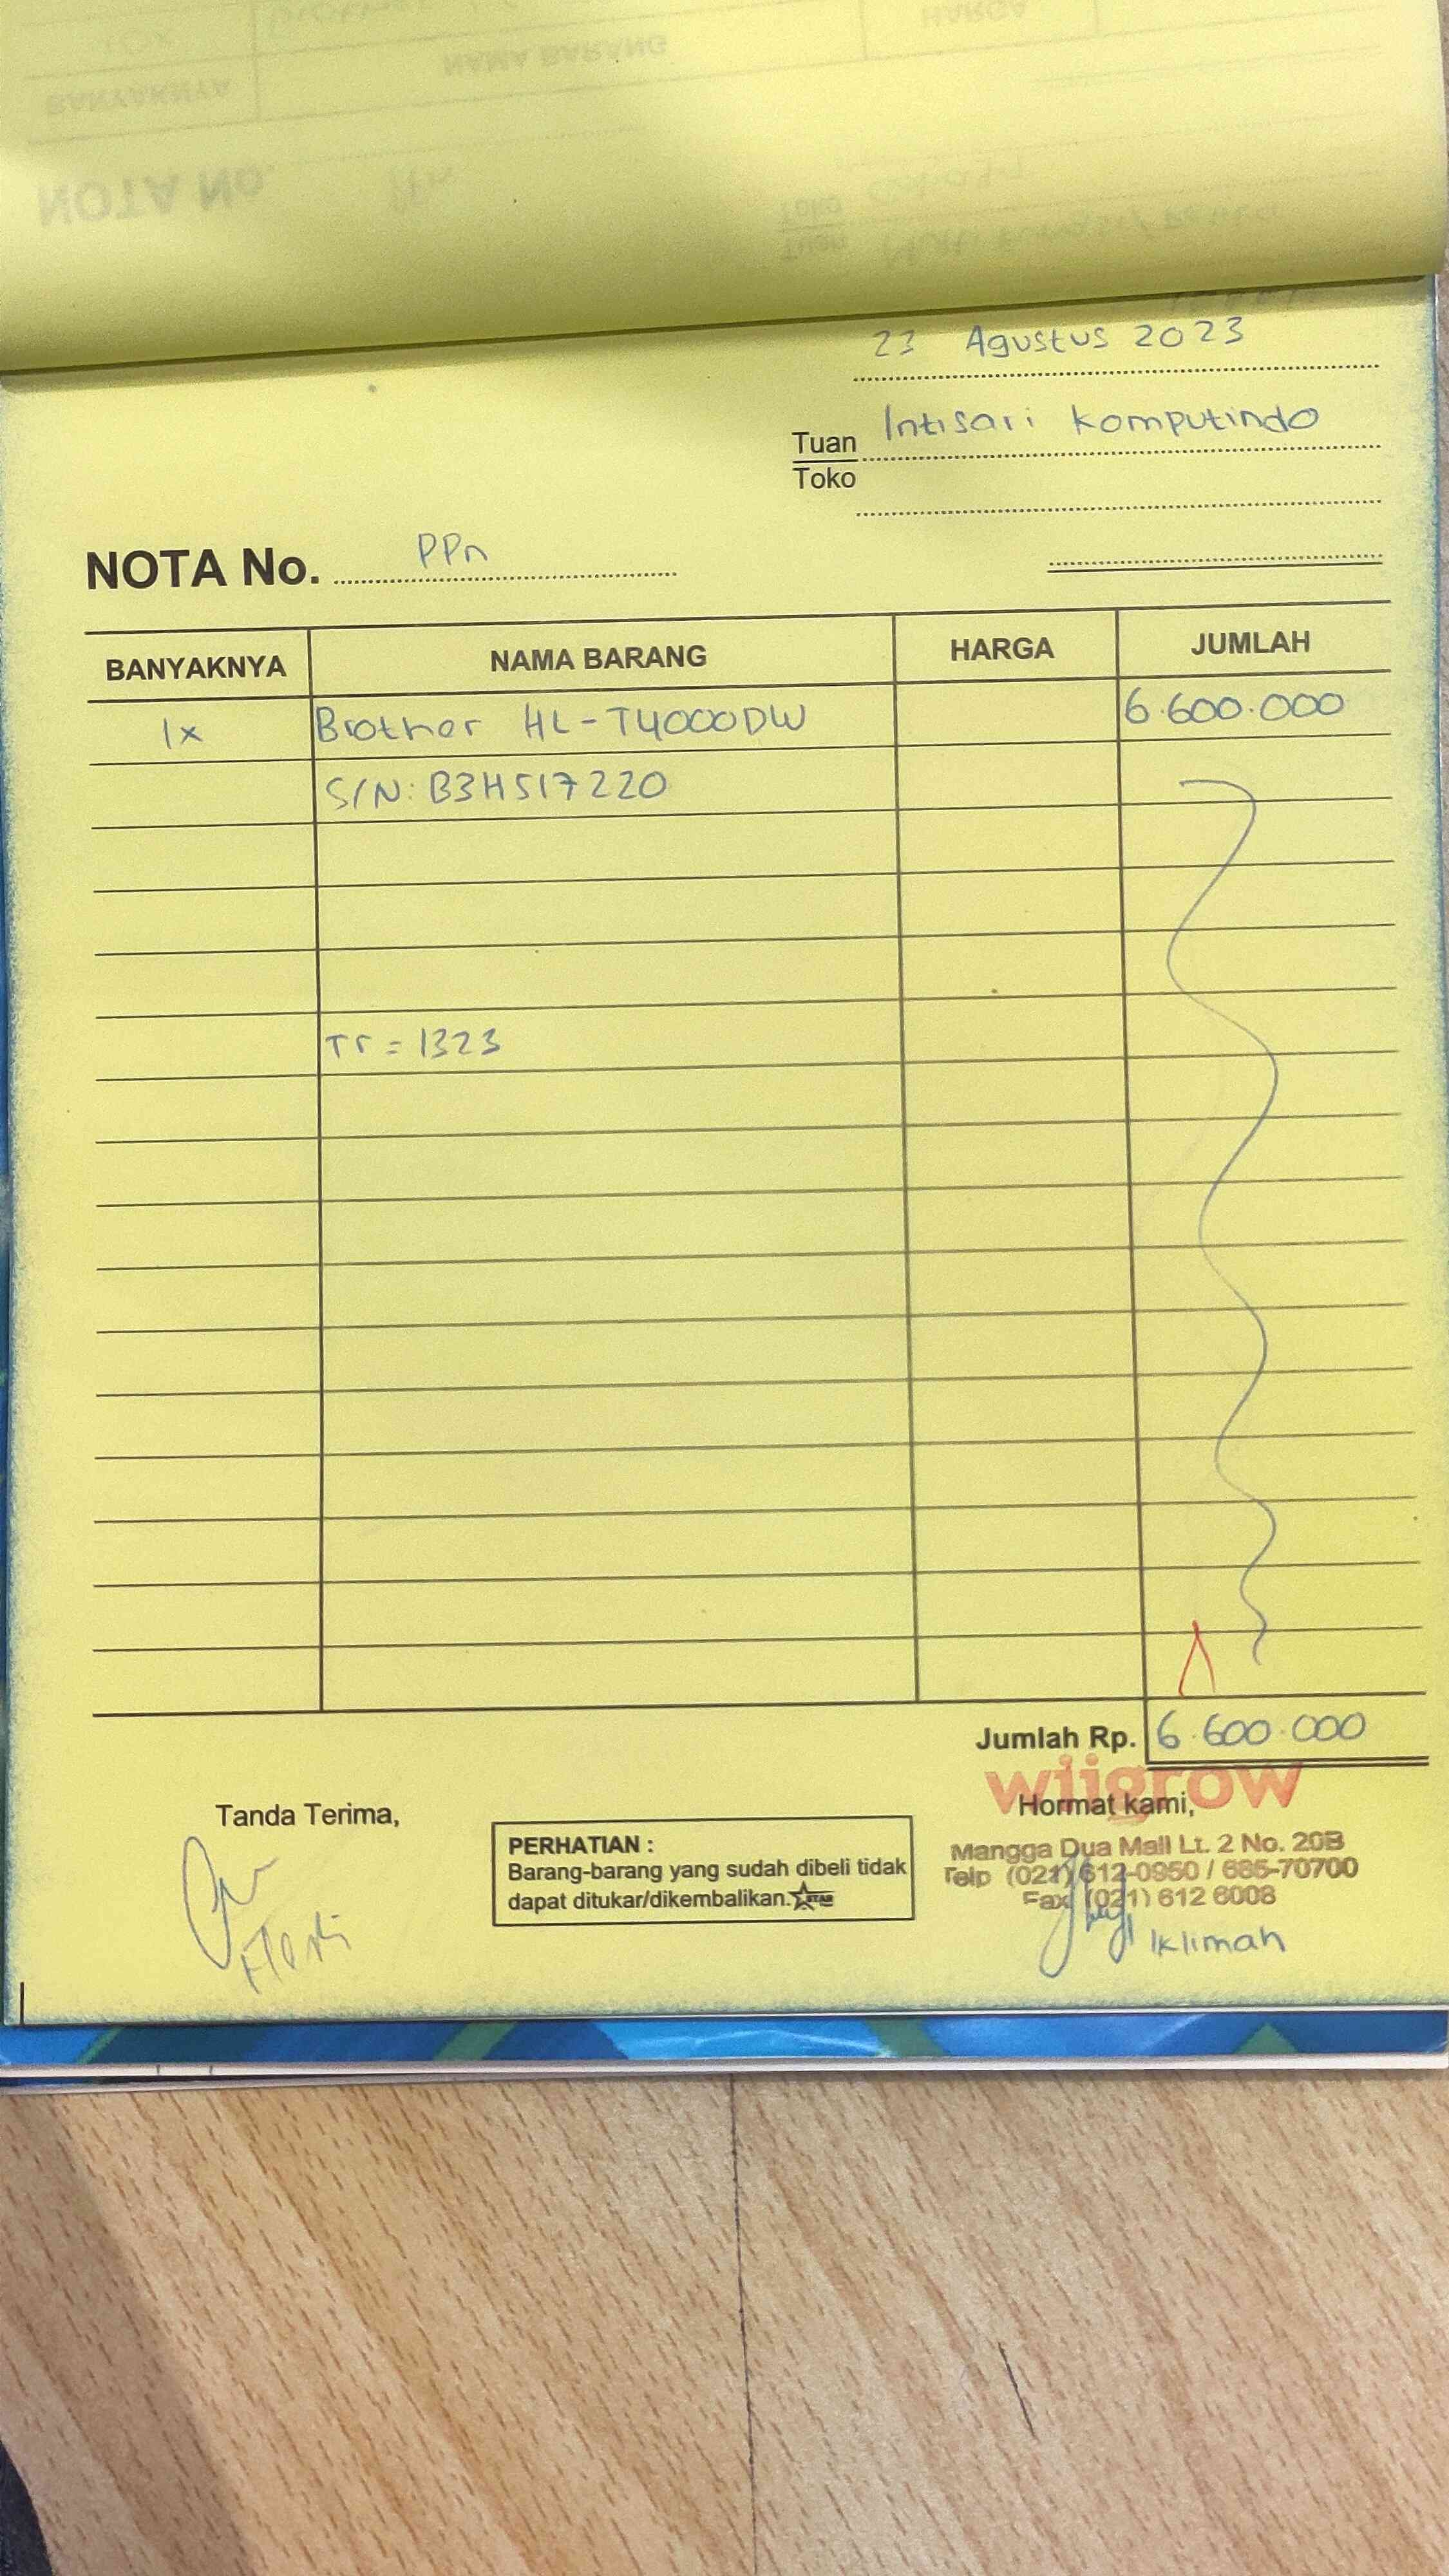 23 Agustus 2023
Tuan Intisari Komputindo
Toko
NOTA No. PPn
BANYAKNYA NAMA BARANG HARGA JUMLAH
1x Brother HL-T4000DW 6.600.000
S/N: B3H517220
Tr = 1323
Jumlah Rp. 6.600.000
wiigrow
Tanda Terima,
Hormat kami,
PERHATIAN :
Barang-barang yang sudah dibeli tidak
dapat ditukar/dikembalikan.
Mangga Dua Mall Lt. 2 No. 20B
Telp (021) 612-0950 / 685-70700
Fax (021) 612 6008
Iklimah